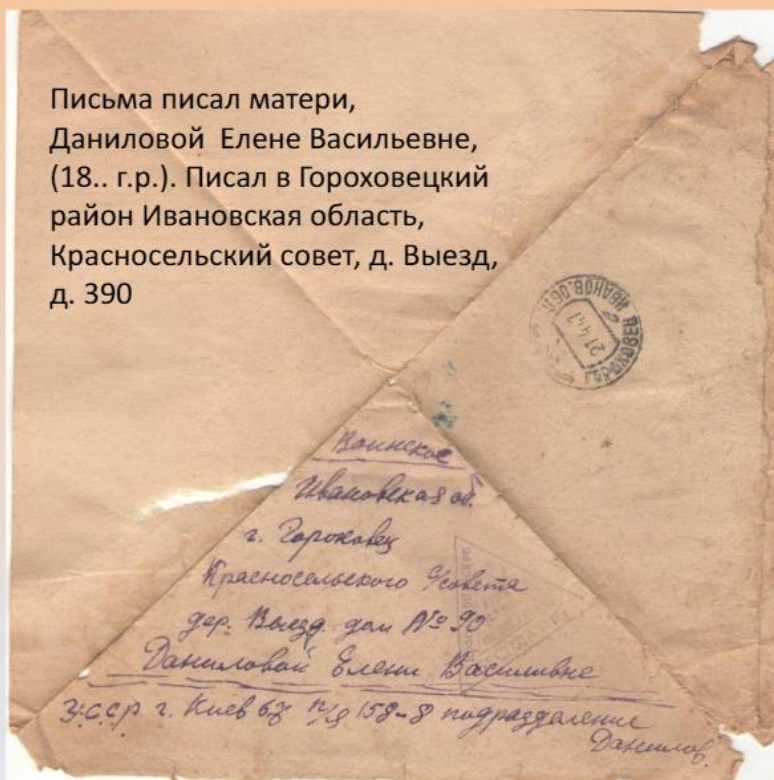 Письма писал матери,
Даниловой Елене Васильевне,
(18.. г.р.). Писал в Гороховецкий
район Ивановская область,
Красносельский совет, д. Выезд,
д. 390
ГОРОХОВЕЦ ИВАНОВ. ОБЛ.
Воинское
Ивановская об.
г. Гороховец
Красносельского с/совета
дер. Выезд. дом № 90
Даниловой Елени Василивне
У.С.С.Р г. Киев 67 п/я 158-8 подразделение
Данилов.